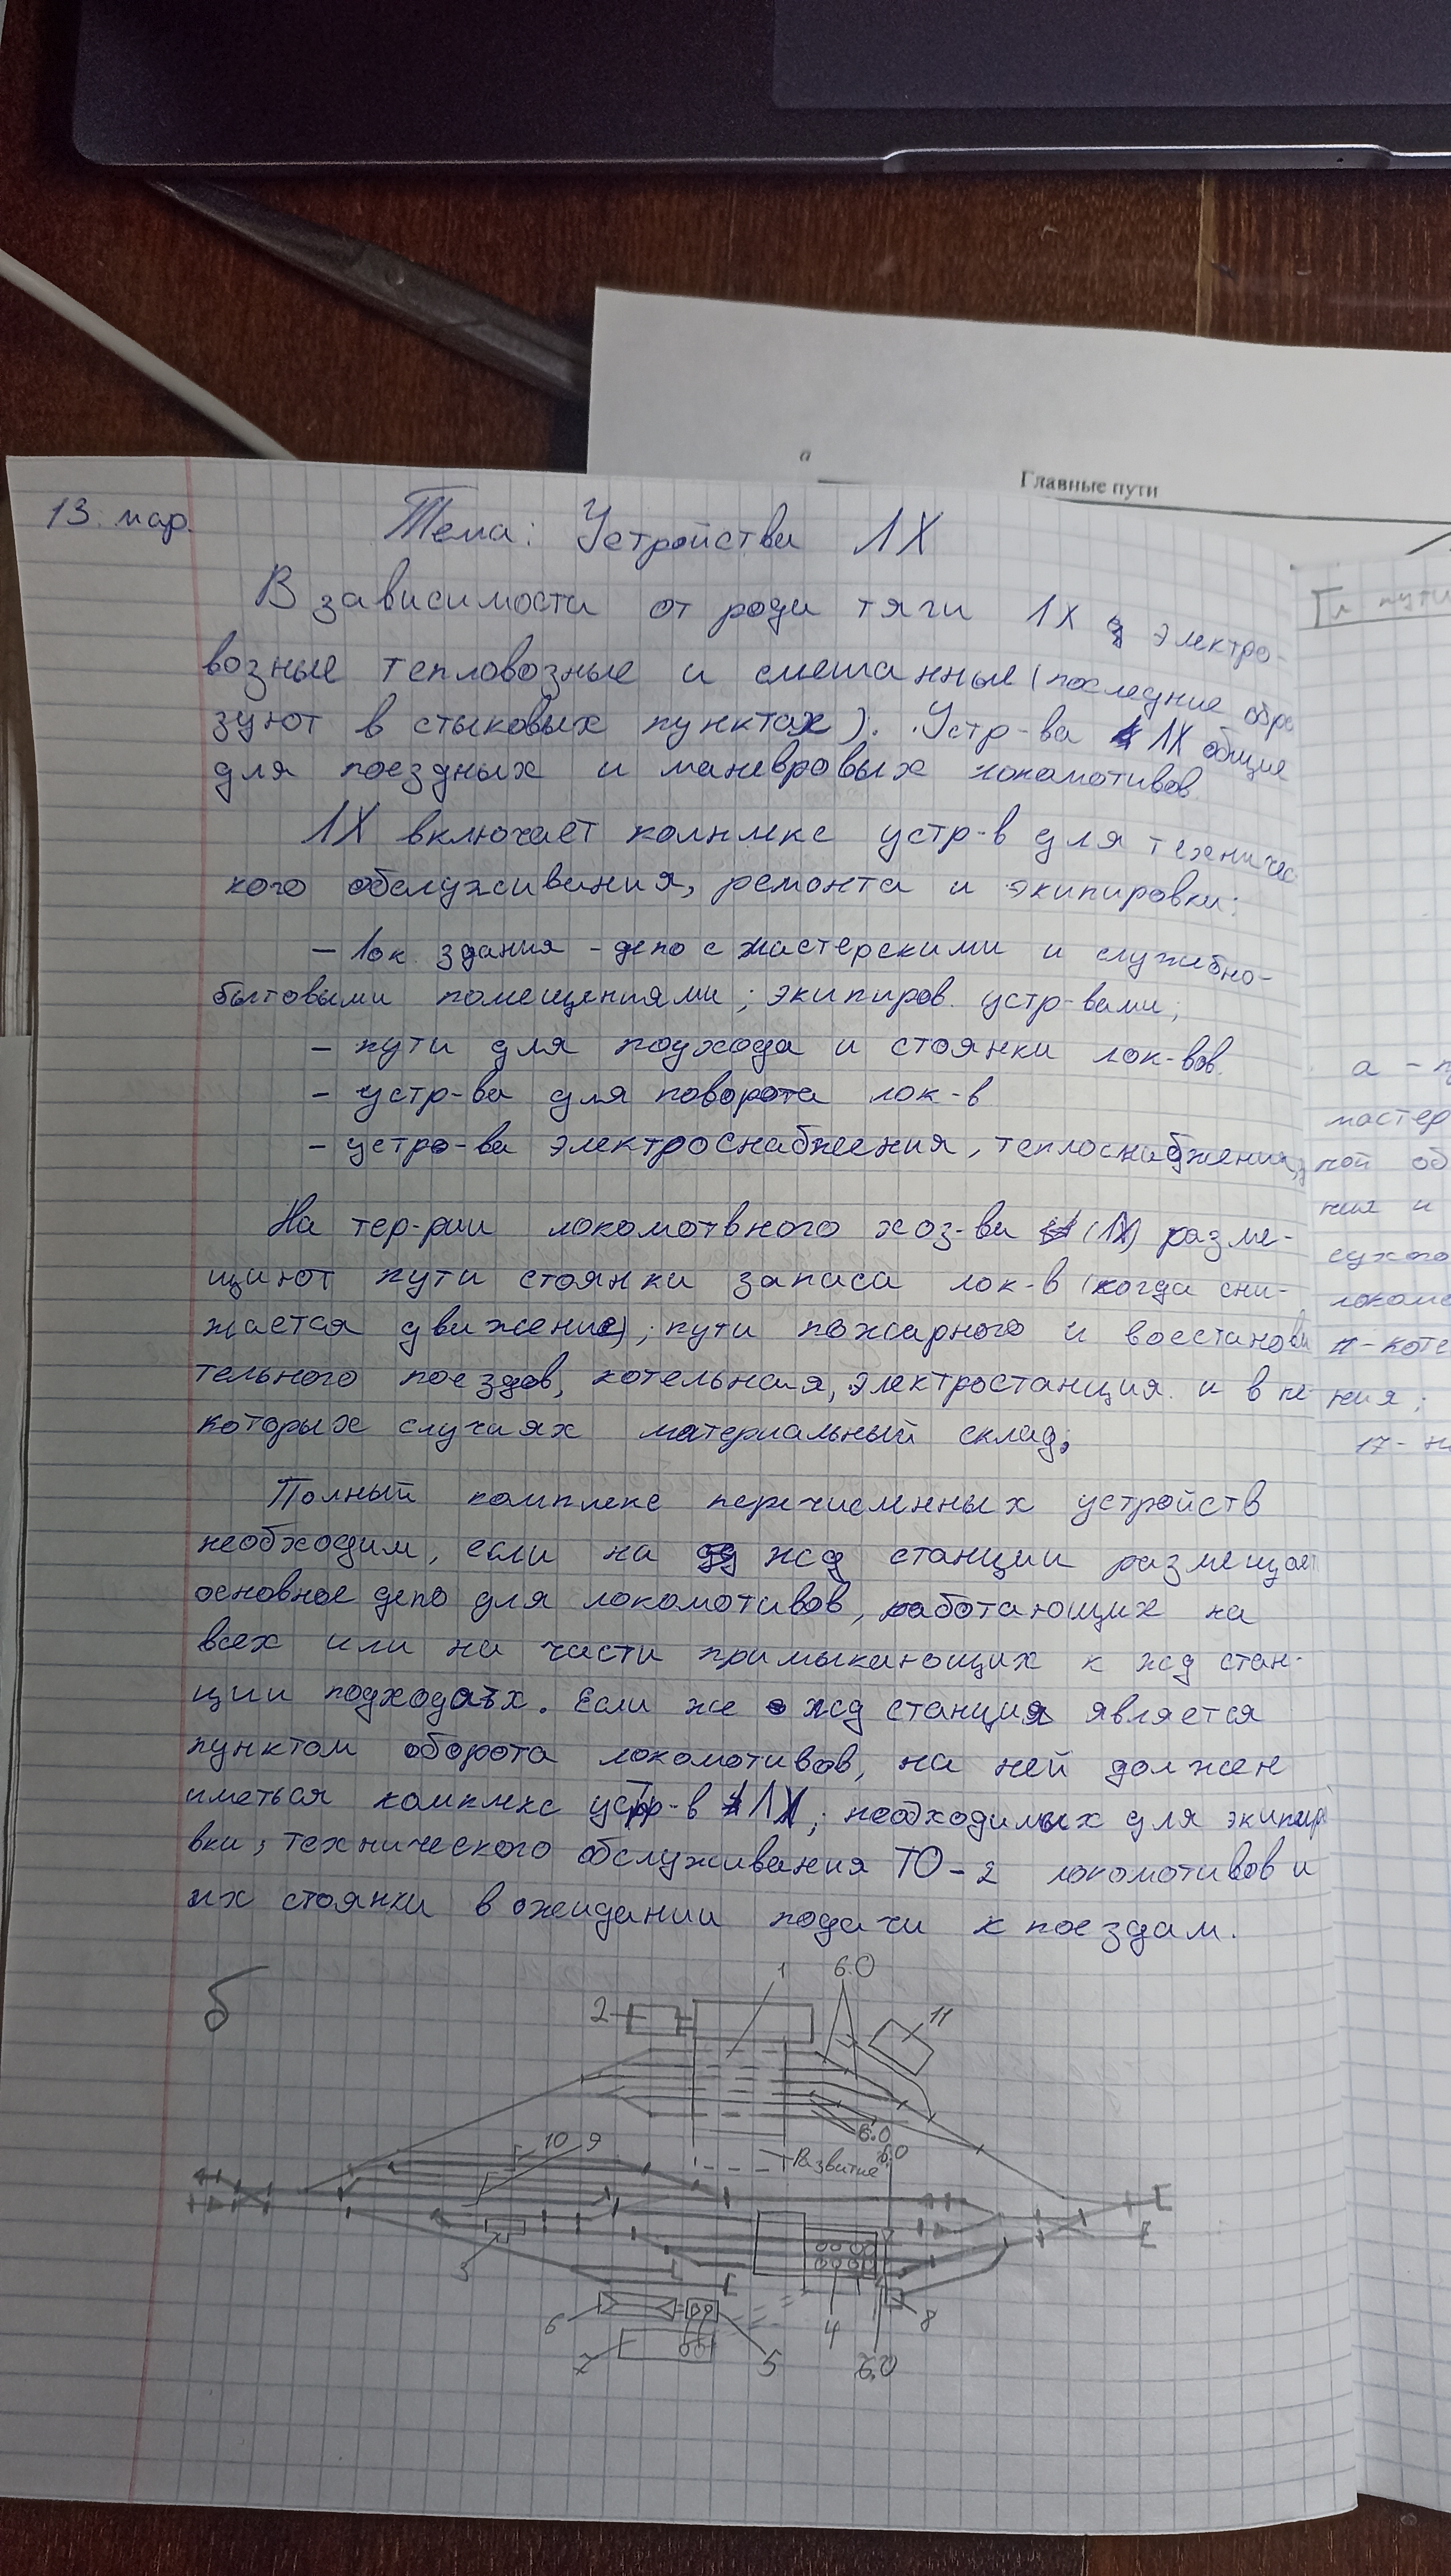 а
Главные пути
13. мар.
Тема: Устройства ЛХ
В зависимости от рода тяги ЛХ электро-
возные тепловозные и смешанные (последние обра
зуют в стыковых пунктах). Устр-ва ЛХ общие
для поездных и маневровых локомотивов
ЛХ включает комплекс устр-в для техничес
кого обслуживания, ремонта и экипировки:
- лок здания - депо с мастерскими и служебно-
бытовыми помещениями; экипиров. устр-вами;
- пути для подхода и стоянки лок-вов.
- устр-ва для поворота лок-в
- устро-ва электроснабжения, теплоснабжения,
На тер-рии локомотвного хоз-ва (ЛХ) разме-
щают пути стоянки запаса лок-в (когда сни-
жается движение); пути пожарного и восстанови
тельного поездов, котельная, электростанция и в не
которых случаях материальный склад.
Полный комплекс перечисленных устройств
необходим, если на жд станции размещают
основное депо для локомотивов, работающих на
всех или на части примыкающих к жд стан-
ции подходах. Если же жд станция является
пунктом оборота локомотивов, на ней должен
иметься комплекс устр-в ЛХ, необходимых для экипиро
вки, технического обслуживания ТО-2 локомотивов и
их стоянки в ожидании подачи к поездам.
б
1
6.0
2
11
6.0
6.0
Развитие
10 9
3
6
7
5
4
6.0
8
Гл пути
а - п
мастер
ной об
ния и
сухого
локомо
п-коте
ния;
17- н